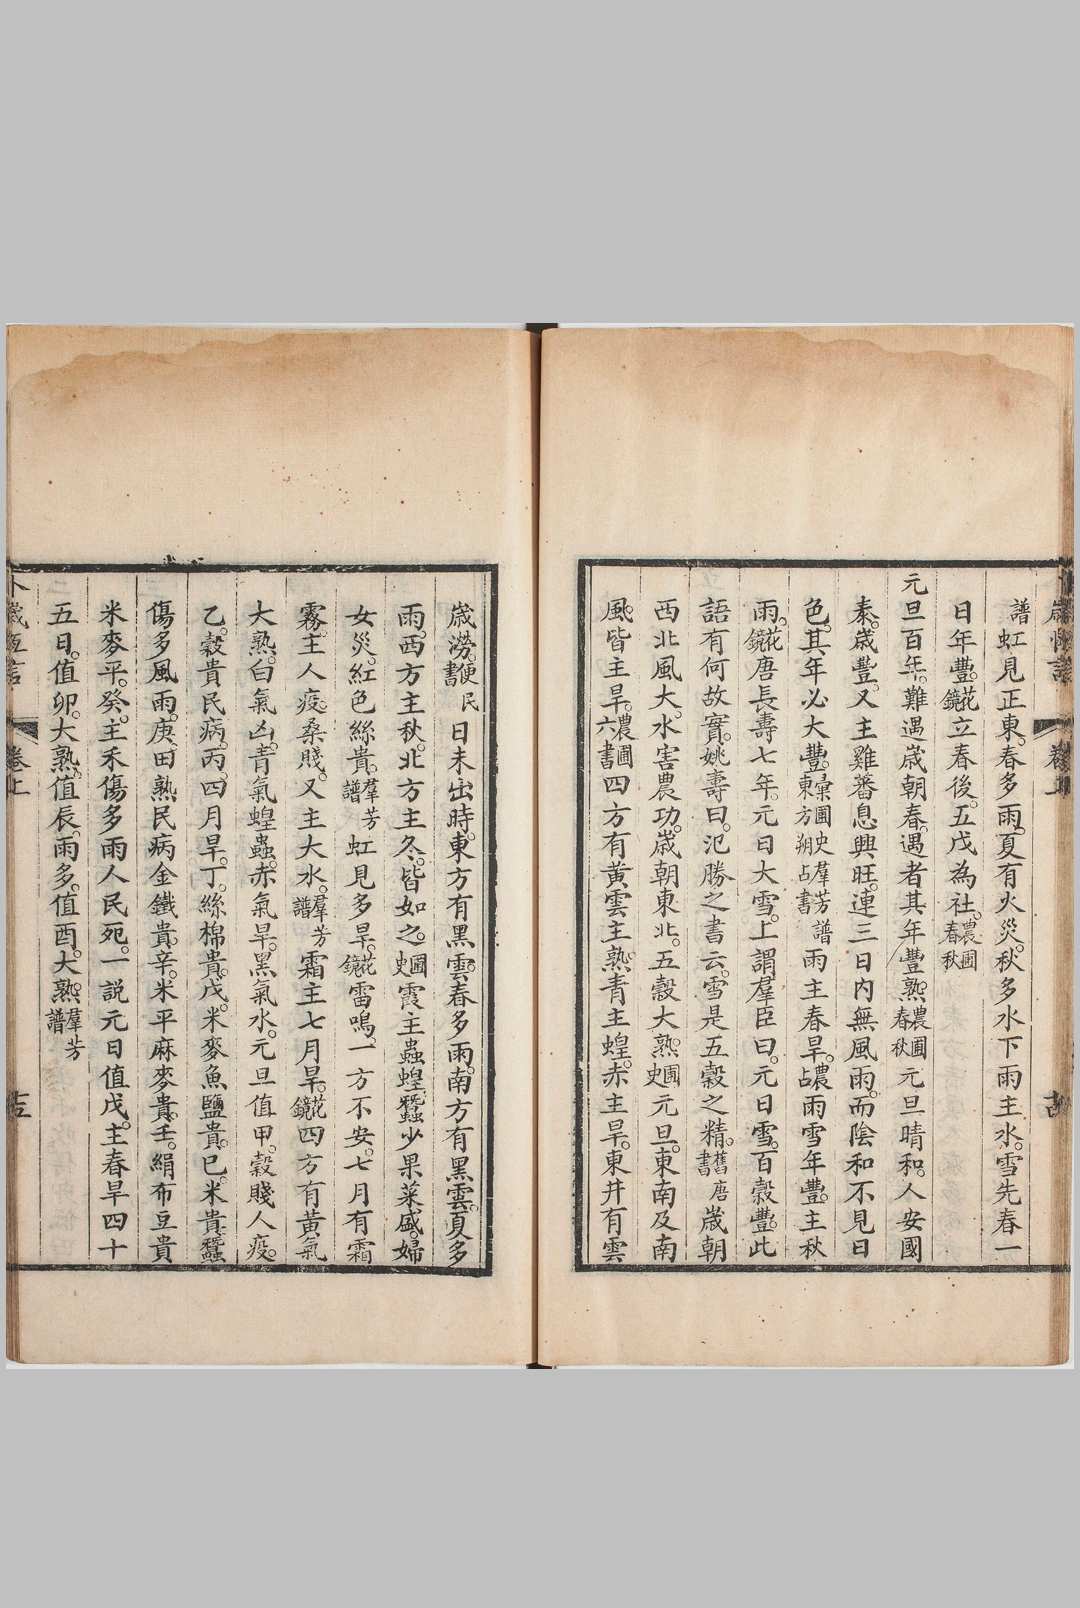 譜虹見正東。春多雨。夏有火災。秋多水下雨主水。雪先春一
日年豐。花鏡立春後。五戊為社。農圃春秋
元旦百年。難遇歲朝春。遇者其年豐熟。農圃春秋元旦晴和。人安國
泰。歲豐。又主雞蕃息興旺。連三日內無風雨。而陰和不見日
色。其年必大豐。彙圃史羣芳譜東方朔占書雨主春旱。農占雨雪年豐。主秋
雨。花鏡唐長壽七年。元日大雪。上謂羣臣曰。元日雪。百穀豐。此
語有何故實。姚壽曰。氾勝之書云。雪是五穀之精。舊唐書歲朝
西北風大。水害農功。歲朝東北。五穀大熟。圃史元旦。東南及南
風。皆主旱。農圃六書四方有黃雲主熟。青主蝗。赤主旱。東井有雲
歲澇。便民書日未出時。東方有黑雲春多雨。南方有黑雲。夏多
雨。西方主秋。北方主冬。皆如之。圃史霞主蟲蝗。蠶少果菜盛。婦
女災。紅色絲貴。羣芳譜虹見多旱。花鏡雷鳴。一方不安。七月有霜
霧。主人疫。桑賤。又主大水。羣芳譜霜主七月旱。花鏡四方有黃氣
大熟。白氣凶。青氣蝗蟲。赤氣旱。黑氣水。元旦值甲。穀賤人疫。
乙。穀貴民病。丙。四月旱。丁。絲棉貴。戊。米麥魚鹽貴。已。米貴蠶
傷多風雨。庚。田熟民病金鐵貴。辛。米平麻麥貴。壬。絹布豆貴
米麥平。癸。主禾傷多雨人民死。一說元日值戊。主春旱四十
五日。值卯。大熟。值辰。雨多。值酉。大熟。羣芳譜
卷上